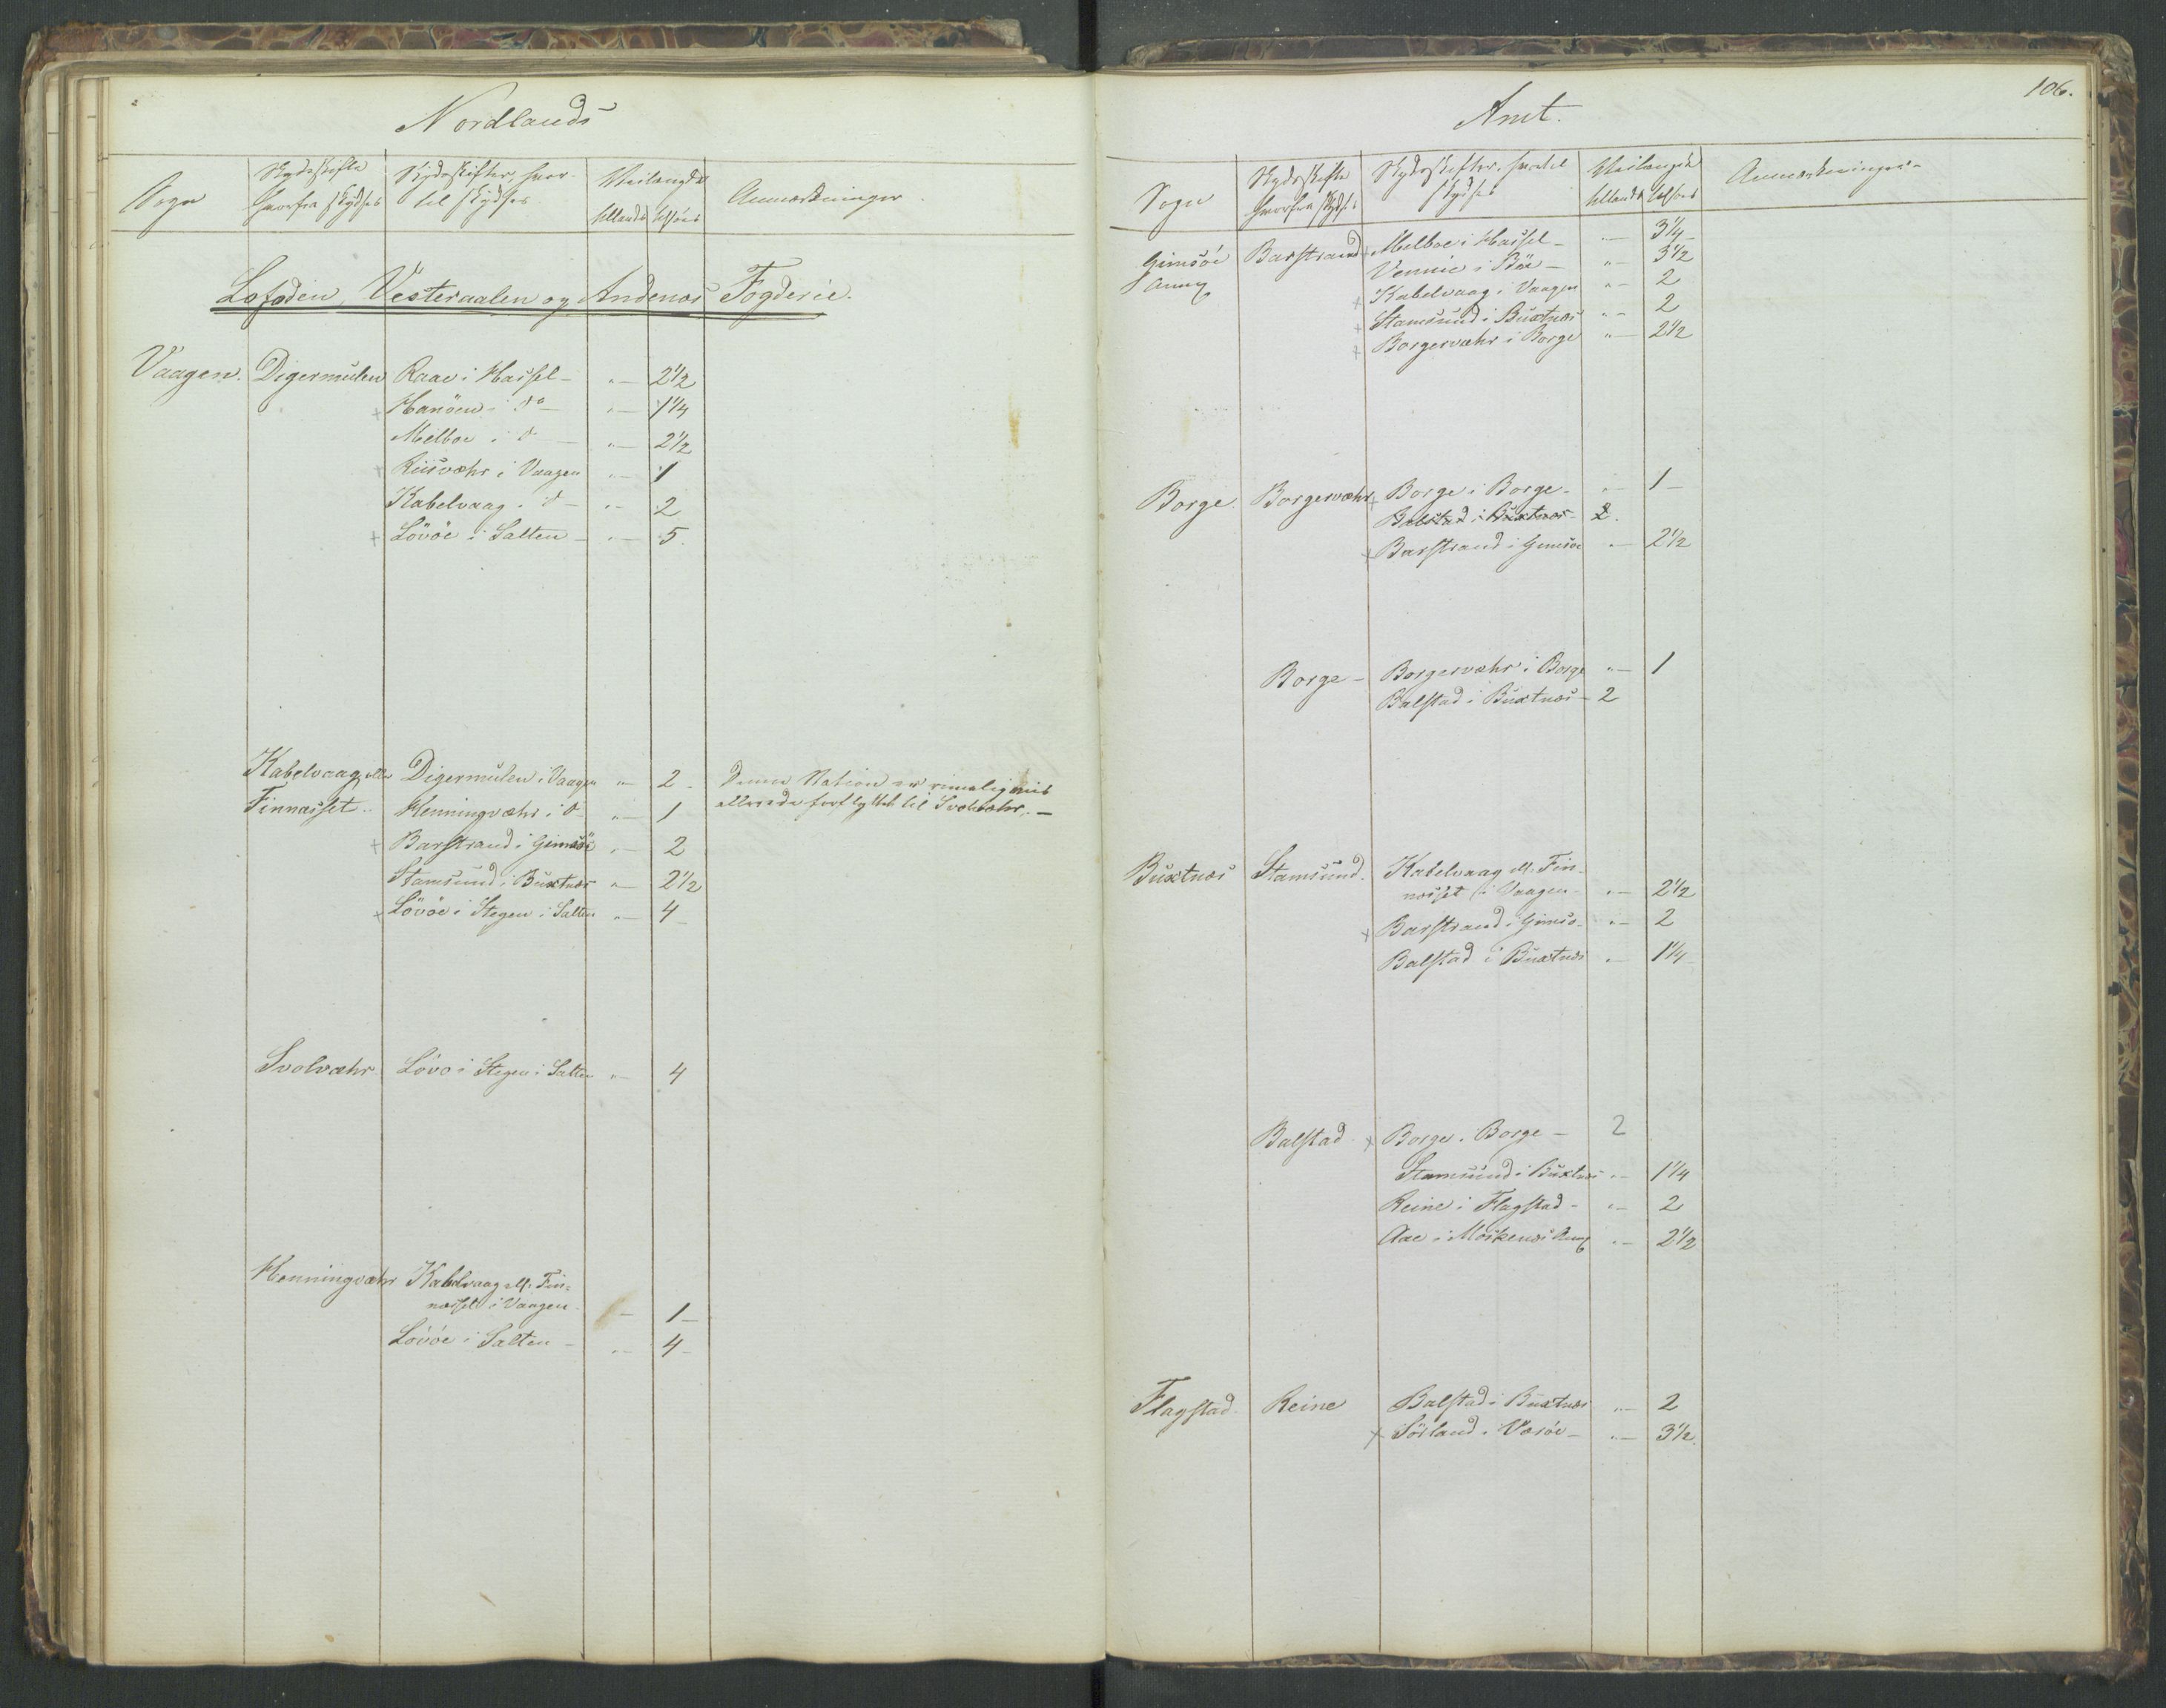 Nordlands
Sogn | Skydsskifte hvorfra skydses | Skydsskifter, hvortil skydses | Veilængde tillands | tilsöes | Anmærkninger
Lofoden, Vesteraalen og Andenæs Fogderie.
Vaagen. Digermulen Raae i Hassel - "— 2½
+ Hanöen i do — "— 1¼
Melboe i d — "— 2½
+ Risværhr i Vaagen "— 1
Kabelvaag i d — "— 2
+ Lövöe i Salten — "— 5.
Kabelvaag ell. Digermulen i Vaagen "— 2 - Denne Station er rimeligviis
Finnæsset.. Henningvæhr i d "— 1 allerede forflyttet til Svolvæhr. —
+ Barstrand i Gimsöe "— 2
Stamsund i Buxtnæs "— 2½
+ Lövöe i Stegen i Salten "— 4
Svolvæhr Lövö i Stegen i Salten "— 4
Henningvæhr Kabelvaag ell. Fin-
næsset i Vaagen - "— 1 —
Lövöe i Salten — "— 4 -
106.
Amt.
Sogn | Skydsskifte hvorfra skydses | Skydsskifter, hvortil skydses | Veilængde tillands | tilsöes | Anmærkninger
Gimsöe Barstrand + Melboe i Hassel - "— 3¼ -
Annex i Böe — "— 3½
+ Kabelvaag i Vaagen "— 2
+ Stamsund i Buxtnæs "— 2
+ Borgervæhr i Borge "— 2½
Borge. Borgervæhr + Borge i Borge - "— 1 —
Balstad i Buxtnæs - 2.
+ Barstrand i Gimsöe "— 2½
Borge — Borgervæhr i Borge "— 1
Balstad i Buxtnæs — 2
Buxtnæs Stamsund. Kabelvaag ell. Fin-
næsset i Vaagen - "— 2½
+ Barstrand i Gimsö - "— 2
Balstad i Buxtnæs "— 1¼
Balstad + Borge i Borge — 2
Stamsund i Buxtnæs "— 1¼
Reine i Flagstad - "— 2
Aae i Moskenæs Annex "— 2½
Flagstad. Reine Balstad i Buxtnæs "— 2
+ Sörland i Værøe — "— 3½.